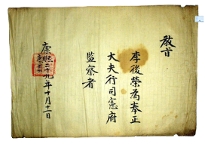 教旨
李後榮為奉正
大夫行司憲府
監察者
康熙二十九年十月十二日